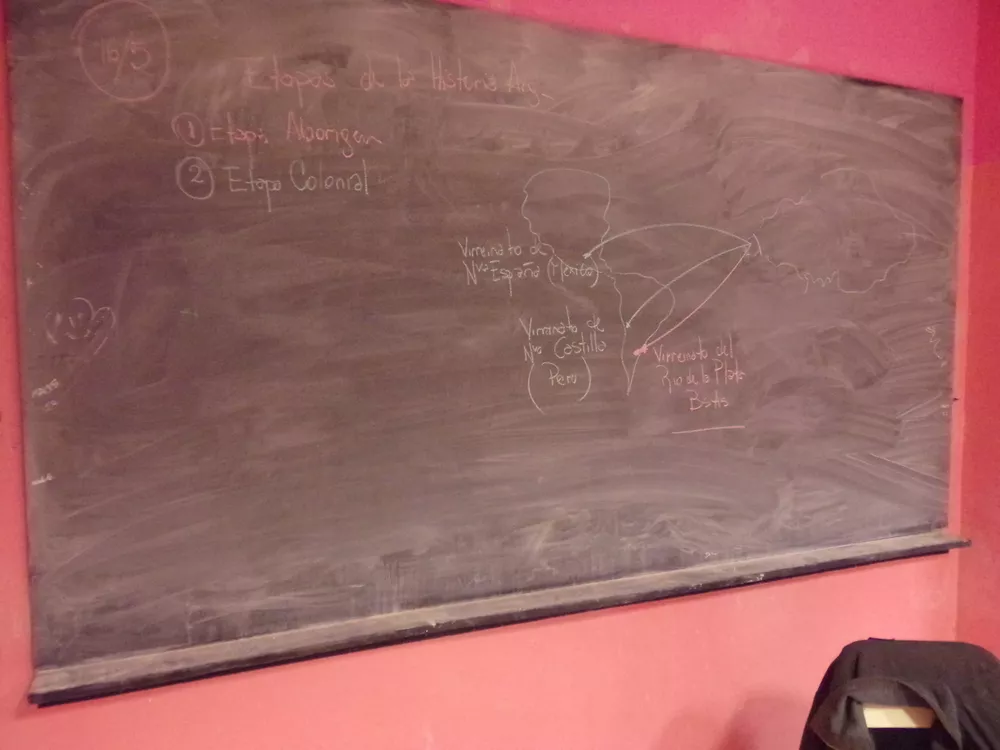 16/5
Etapas de la Historia Arg.
① Etapa Aborigen
② Etapa Colonial
Virreinato de
Nva España (Mexico)
Virreinato de
Nva Castilla
(Peru)
Virreinato del
Rio de la Plata
BsAs